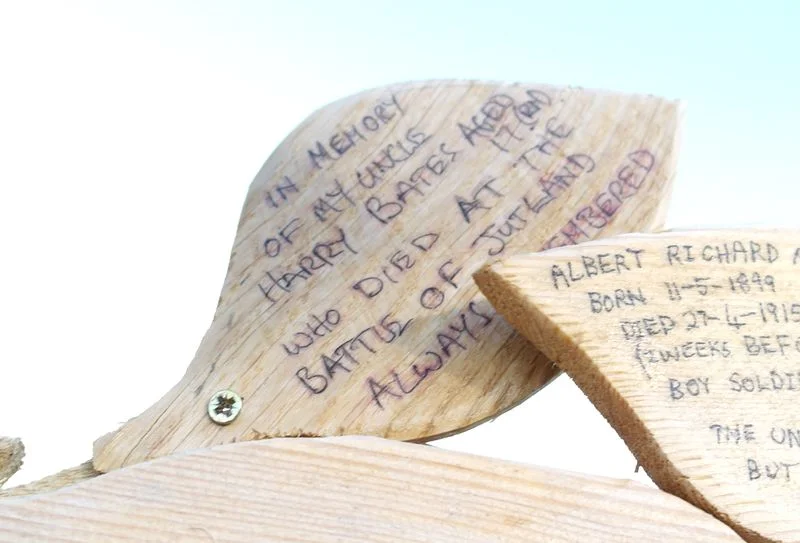 IN MEMORY
OF MY UNCLE
HARRY BATES AGED
17 AND
WHO DIED AT THE
BATTLE OF JUTLAND
ALWAYS EMBERED
ALBERT RICHARD
BORN 11-5-1899
DIED 27-4-1915
(2 WEEKS BEF
BOY SOLDI
THE UN
BUT